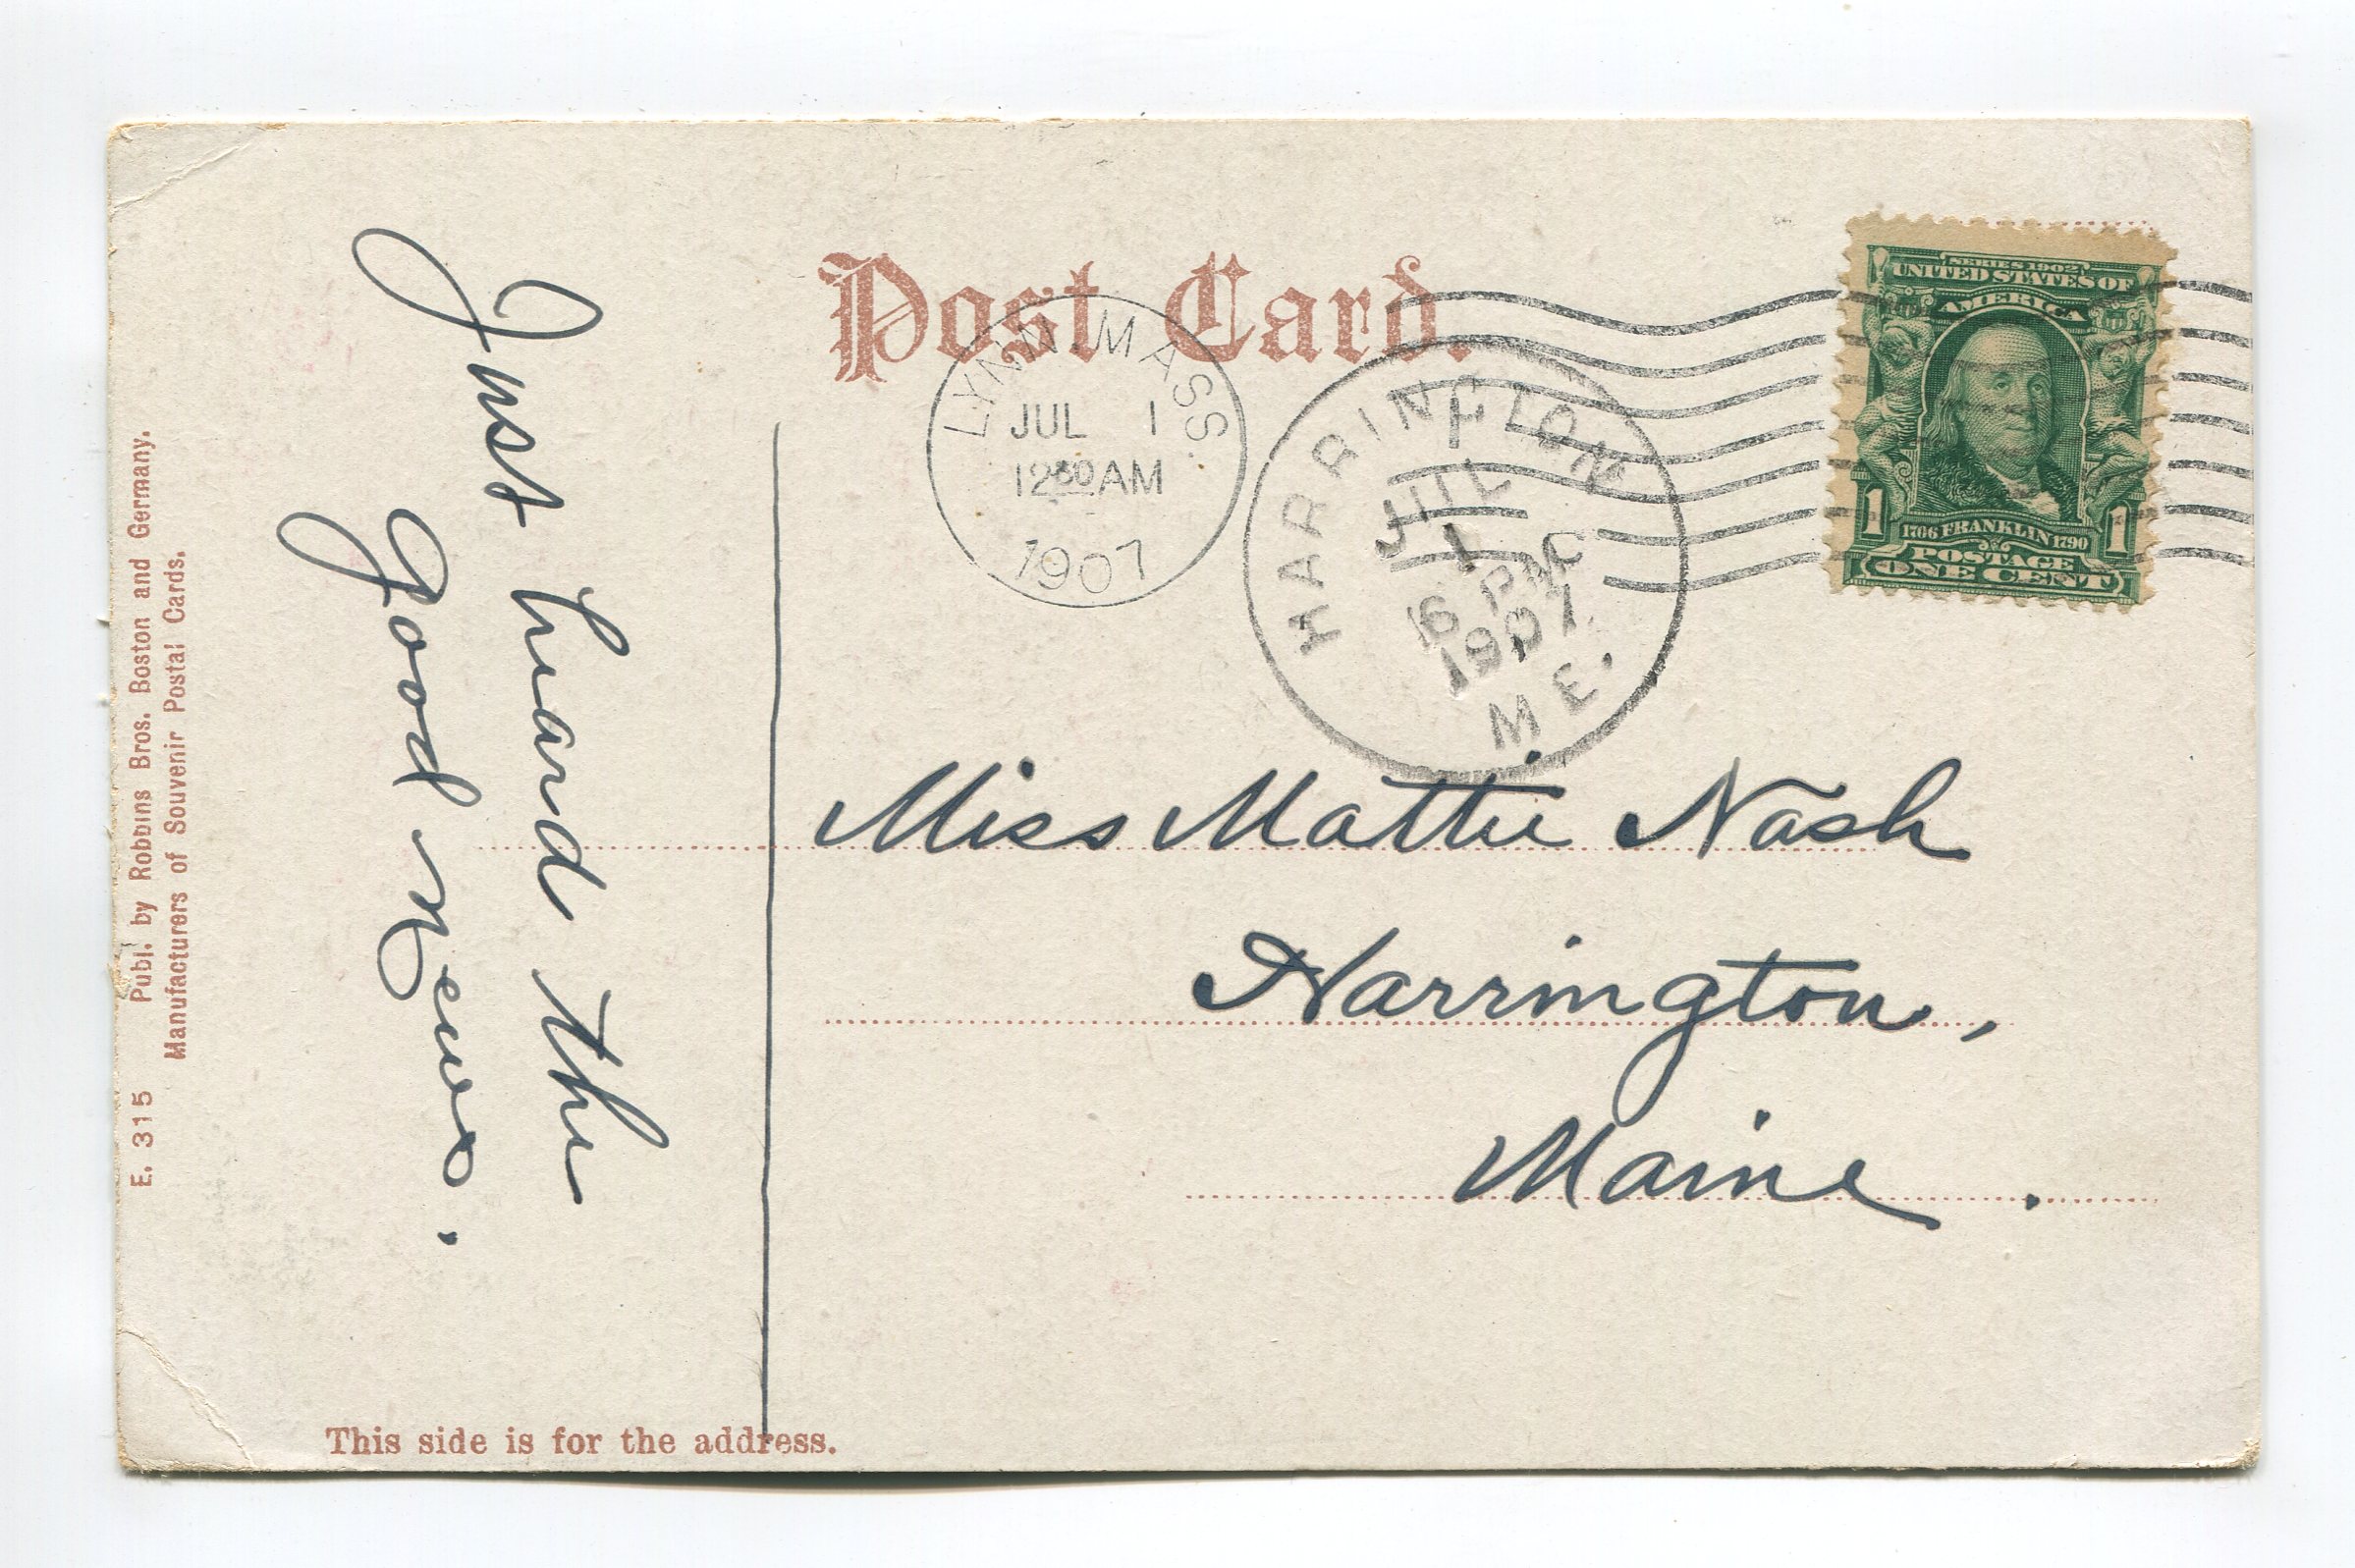 Post Card.
LYNN, MASS.
JUL 1
12 30 AM
1907
HARRINGTON
JUL
1
6 PM
1907
ME.
SERIES 1902
UNITED STATES OF
AMERICA
1 1
1706 FRANKLIN 1790
POSTAGE
ONE CENT
Just heard the
good news.
Miss Mattie Nash
Harrington,
Maine.
E. 315 Publ. by Robbins Bros. Boston and Germany.
Manufacturers of Souvenir Postal Cards.
This side is for the address.